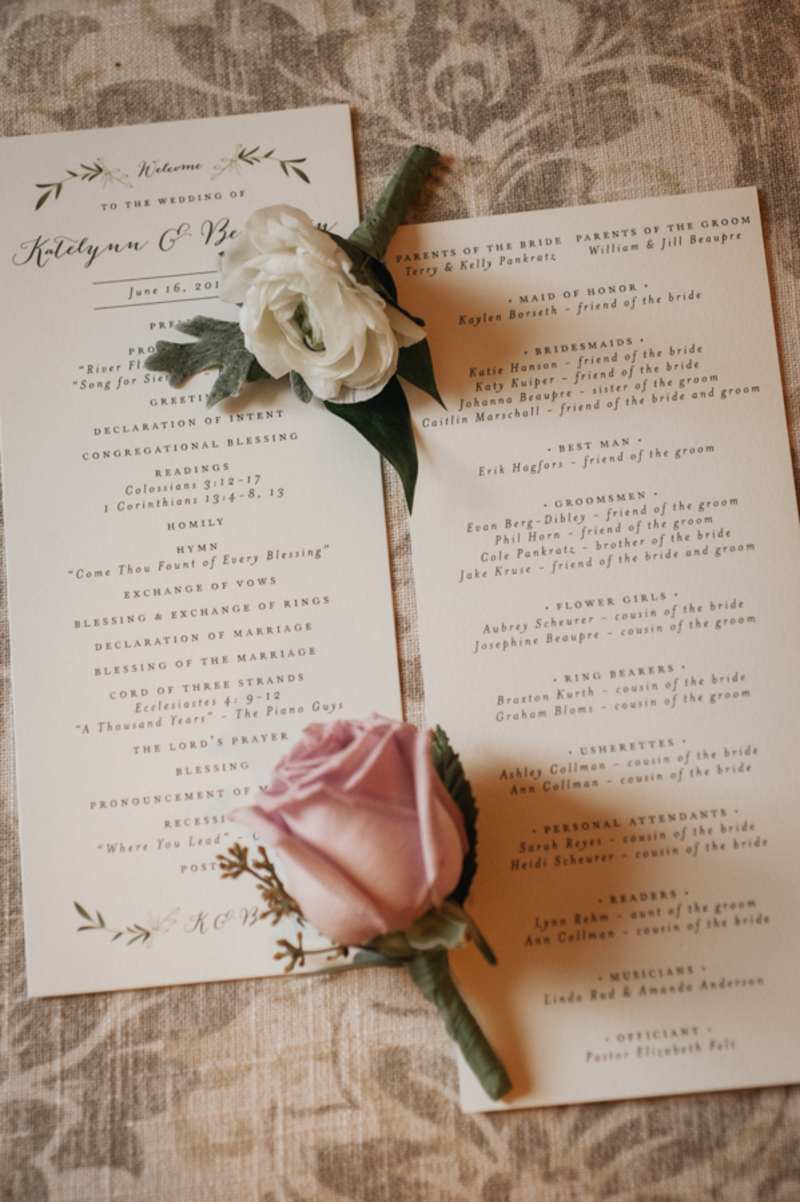 Welcome
TO THE WEDDING OF
Katelynn &
June 16,
"River
"Song for
DECLARATION OF INTENT
CONGREGATIONAL BLESSING
READINGS
Colossians 3:12-17
1 Corinthians 13:4-8, 13
HOMILY
HYMN
"Come Thou Fount of Every Blessing"
EXCHANGE OF VOWS
BLESSING & EXCHANGE OF RINGS
DECLARATION OF MARRIAGE
BLESSING OF THE MARRIAGE
CORD OF THREE STRANDS
Ecclesiastes 4: 9-12
"A Thousand Years" - The Piano Guys
THE LORD'S PRAYER
BLESSING
PRONOUNCEMENT OF
"Where You Lead" -
K & B
PARENTS OF THE BRIDE
Terry & Kelly Pankratz
PARENTS OF THE GROOM
William & Jill Beaupre
• MAID OF HONOR •
Kaylen Borseth - friend of the bride
• BRIDESMAIDS •
Katie Hanson - friend of the bride
Katy Kuiper - friend of the bride
Johanna Beaupre - sister of the groom
Caitlin Marschall - friend of the bride and groom
• BEST MAN •
Erik Hagfors - friend of the groom
• GROOMSMEN •
Evan Berg-Dibley - friend of the groom
Phil Horn - friend of the groom
Cole Pankratz - brother of the bride
Jake Kruse - friend of the bride and groom
• FLOWER GIRLS •
Aubrey Scheurer - cousin of the bride
Josephine Beaupre - cousin of the groom
• RING BEARERS •
Braxton Kurth - cousin of the bride
Graham Bloms - cousin of the groom
• USHERETTES •
Ashley Collman - cousin of the bride
Ann Collman - cousin of the bride
• PERSONAL ATTENDANTS •
Sarah Reyes - cousin of the bride
Heidi Scheurer - cousin of the bride
• READERS •
Lynn Rehm - aunt of the groom
Ann Collman - cousin of the bride
• MUSICIANS •
Linda Rud & Amanda Anderson
• OFFICIANT •
Pastor Elizabeth